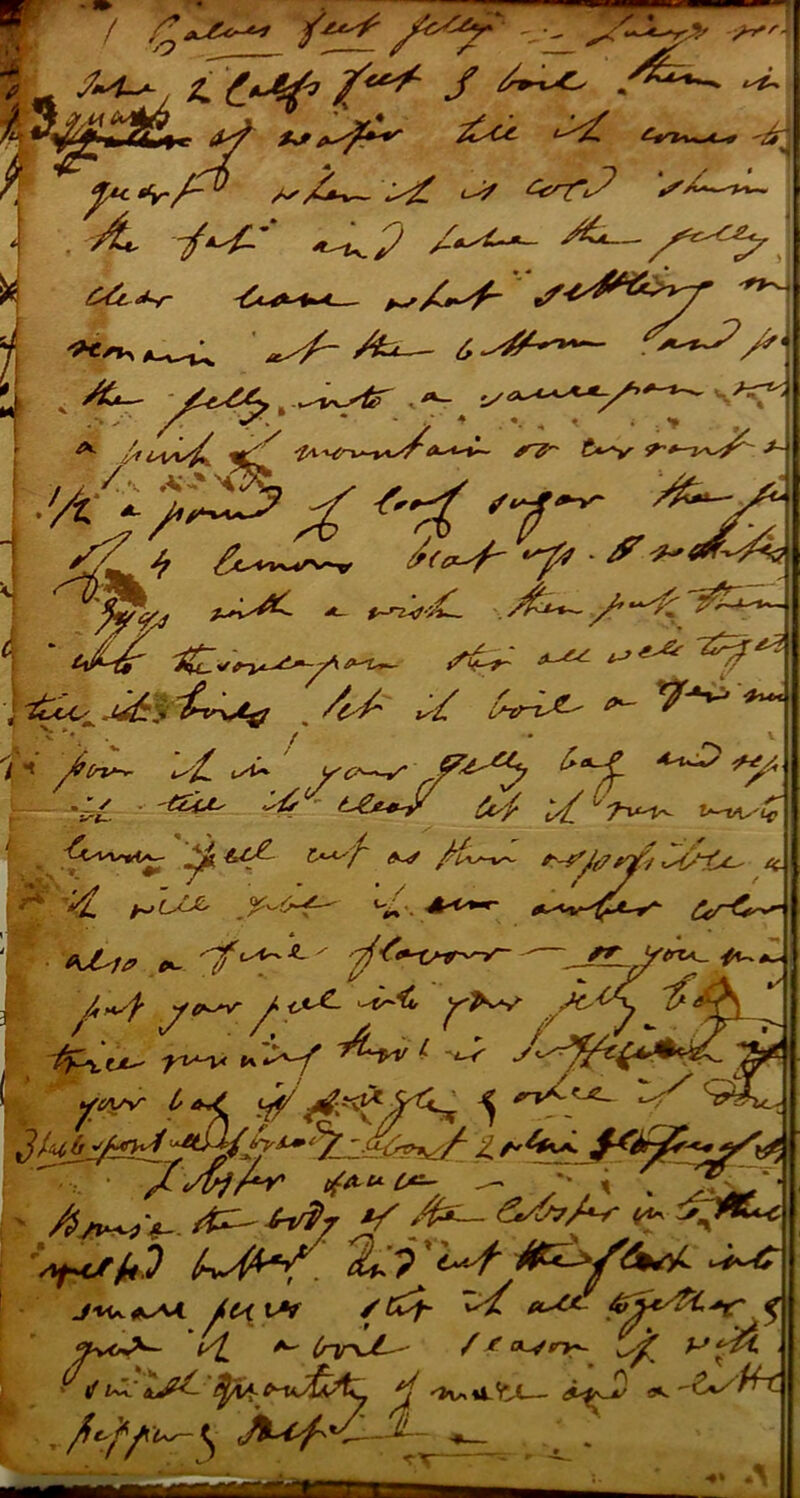 Calves feet jelly
Take 2 Calfs feet & boil them in
3 quarts of water till it comes to
quart when it is cold skim
the fat and take the jelly
clear leave what settling m
remain at the bottom and p
the jelly into a saucepan wi
a pint of mountain or currant
1/2 a pound of loaf sugar the ju
of 4 lemons beat up 8 whites
Eggs with a wisk then put them
into the saucepan stir all well toget
till it boils let it boil a few mi
pour it in your jelly bag and rep
it till its clear let it run unto
lemon peel cut as thin as possible a
it will give it an amber colou
also a fine flavour — or you may
put your peel into your jelly bag
twice running thro' is sufficient if
your bag is single & once if dou
3 table spoonfulls of brandy about 2 wine glasses of
Lobster sauce —
Bruise the body of the lobster into thic
melted butter and cut the flesh into
small pieces stir it all together &
give it a boil season it with
small quantity of mace and a little
pepper & salt